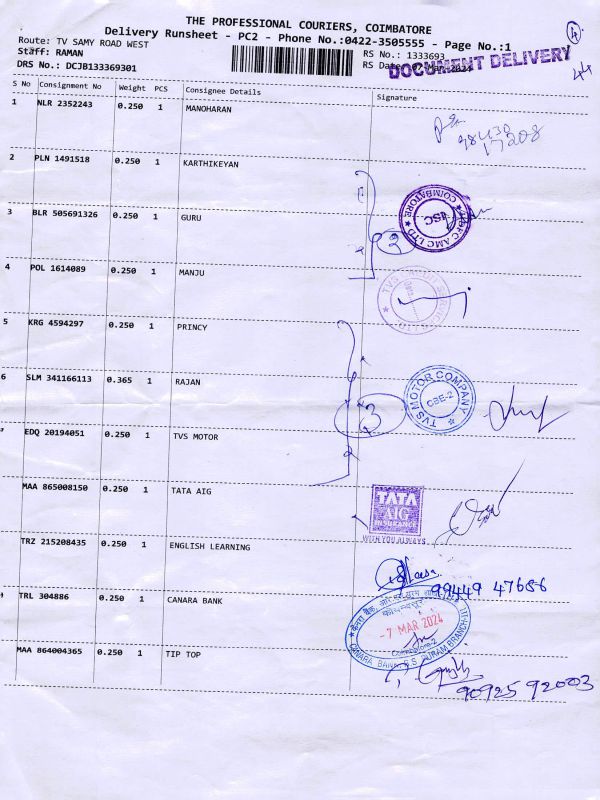 THE PROFESSIONAL COURIERS, COIMBATORE
Delivery Runsheet - PC2 - Phone No.:0422-3505555 - Page No.:1
Route: TV SAMY ROAD WEST
RS No.: 1333693
4
Staff: RAMAN
RS Date:
DOCUMENT DELIVERY
DRS No.: DCJB133369301
44
S No Consignment No Weight PCS Consignee Details Signature
1 NLR 2352243 0.250 1 MANOHARAN
98430
17208
2 PLN 1491518 0.250 1 KARTHIKEYAN
3 BLR 505691326 0.250 1 GURU
2
HDFC AMC LTD COIMBATORE
ISC.
4 POL 1614089 0.250 1 MANJU
TVS
5 KRG 4594297 0.250 1 PRINCY
6 SLM 341166113 0.365 1 RAJAN
3
TVS MOTOR COMPANY
CBE-2
EDQ 20194051 0.250 1 TVS MOTOR
MAA 865008150 0.250 1 TATA AIG
TATA
AIG
INSURANCE
WITH YOU ALWAYS
TRZ 215208435 0.250 1 ENGLISH LEARNING
99449 47686
TRL 304886 0.250 1 CANARA BANK
-7 MAR 2024
CANARA BANK, R S PURAM BRANCH
MAA 864004365 0.250 1 TIP TOP
90925 92003